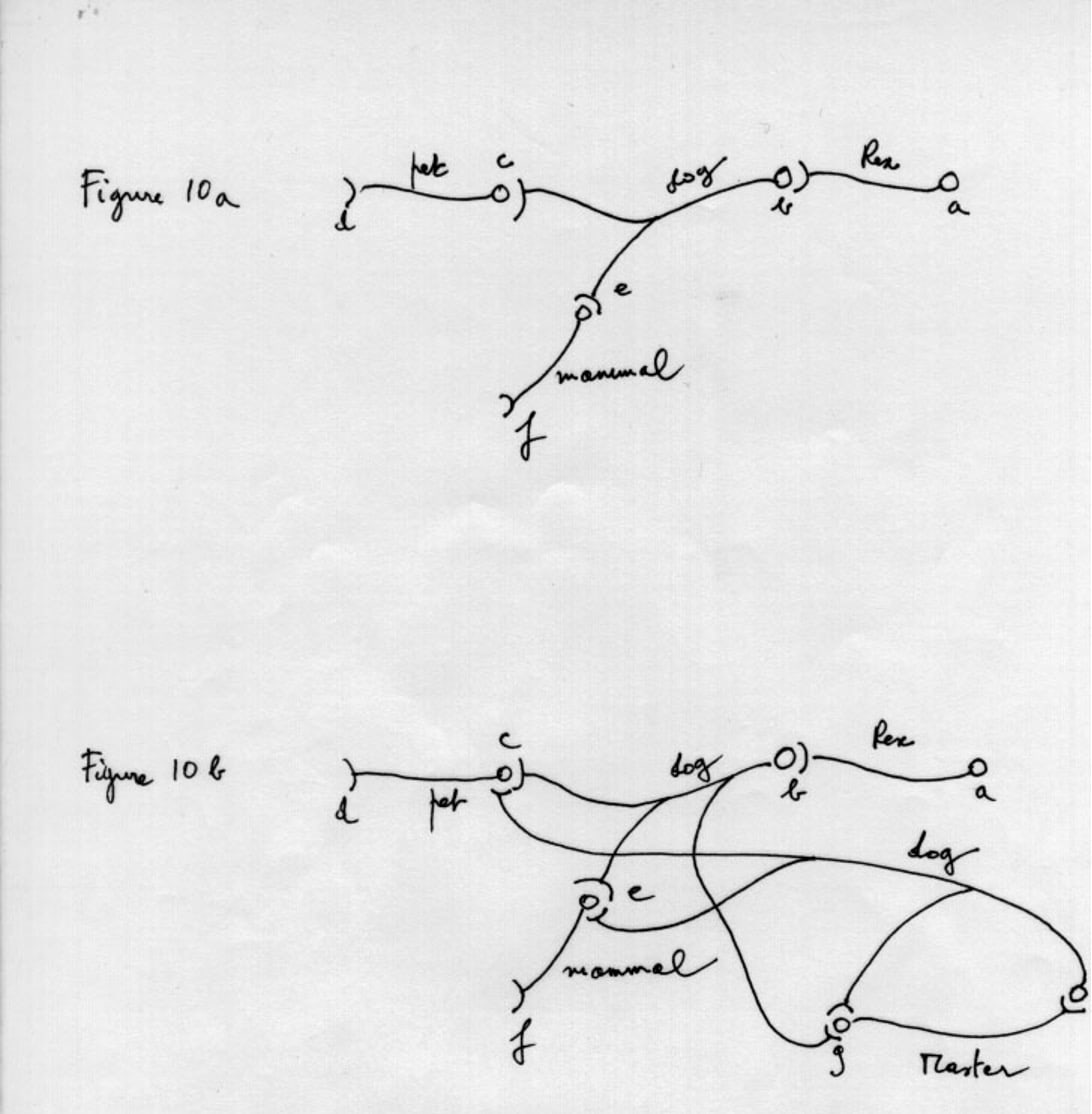 Figure 10a
pet c dog Rex
d b a
e
mammal
f
Figure 10 b
c dog Rex
d pet b a
dog
e
mammal
f g Master